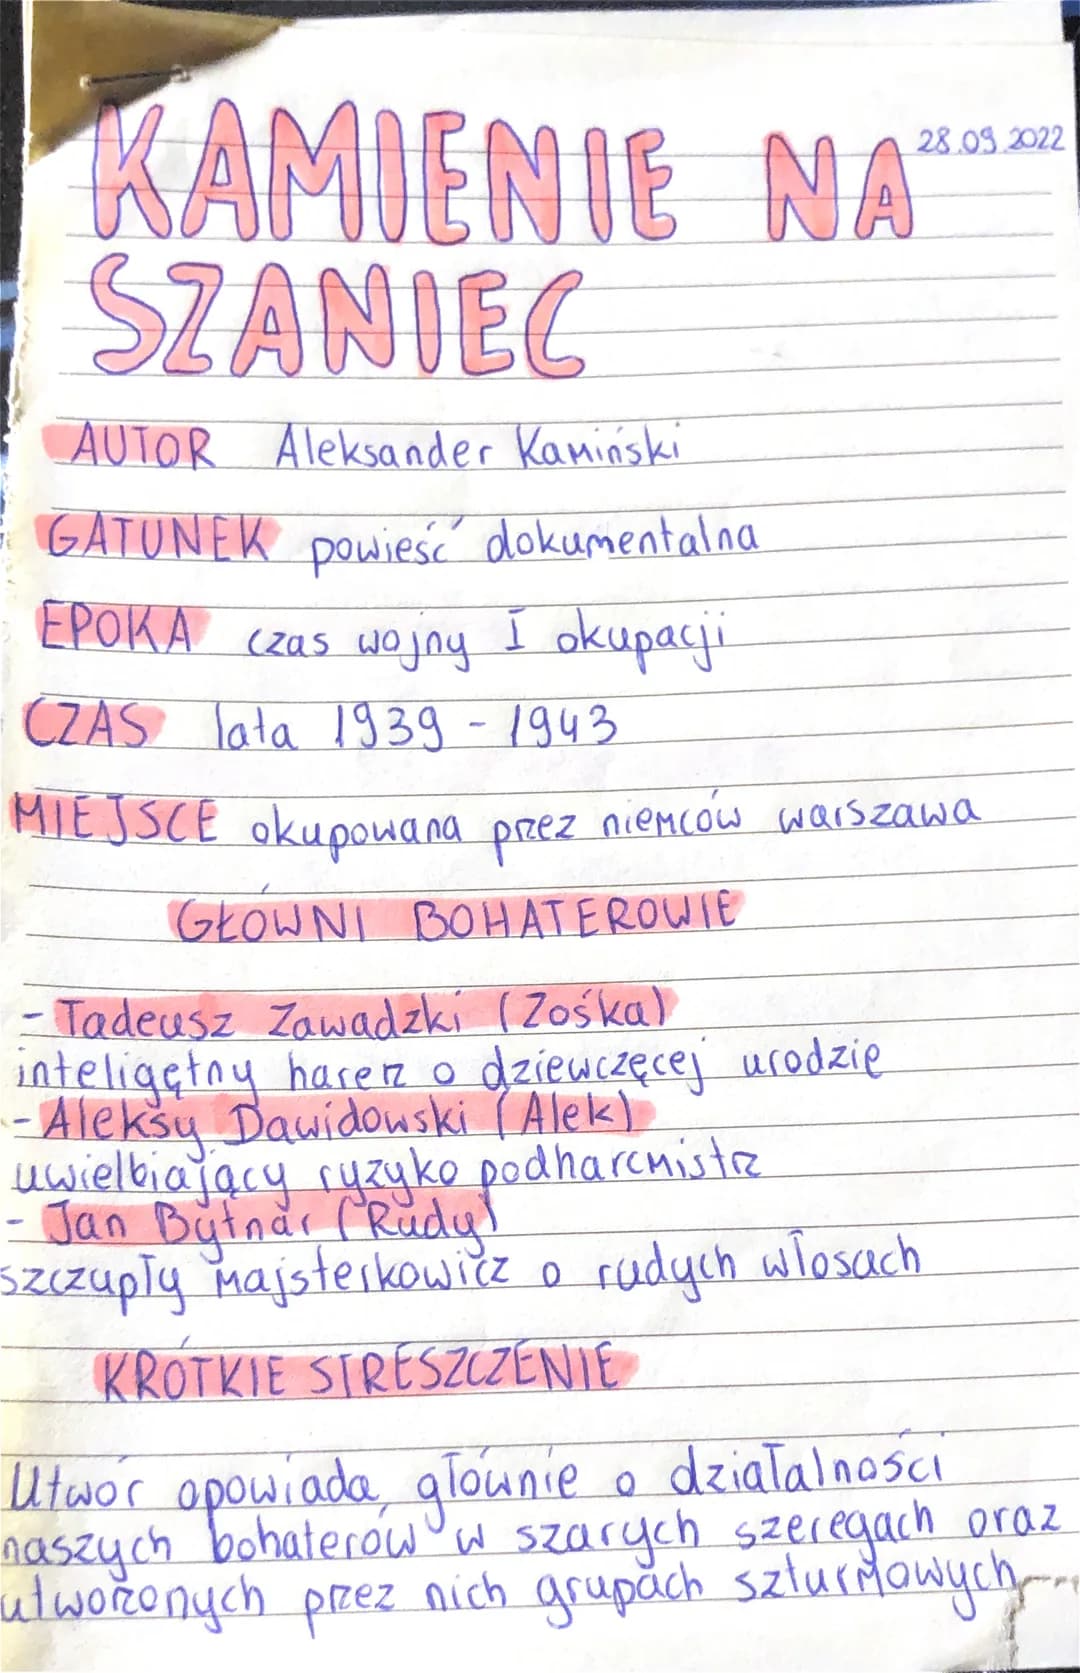 KAMIENIE NA
28.09.2022
SZANIEC
AUTOR Aleksander Kamiński
GATUNEK powieść dokumentalna
EPOKA czas wojny I okupacji
CZAS lata 1939 - 1943
MIEJSCE okupowana przez niemców warszawa
GŁÓWNI BOHATEROWIE
- Tadeusz Zawadzki (Zośka)
inteligętny harerz o dziewczęcej urodzie
- Aleksy Dawidowski (Alek)
uwielbiający ryzyko podharcmistrz
- Jan Bytnar (Rudy)
szczupły majsterkowicz o rudych włosach
KRÓTKIE STRESZCZENIE
Utwór opowiada głównie o działalności
naszych bohaterów w szarych szeregach oraz
utworzonych przez nich grupach szturmowych